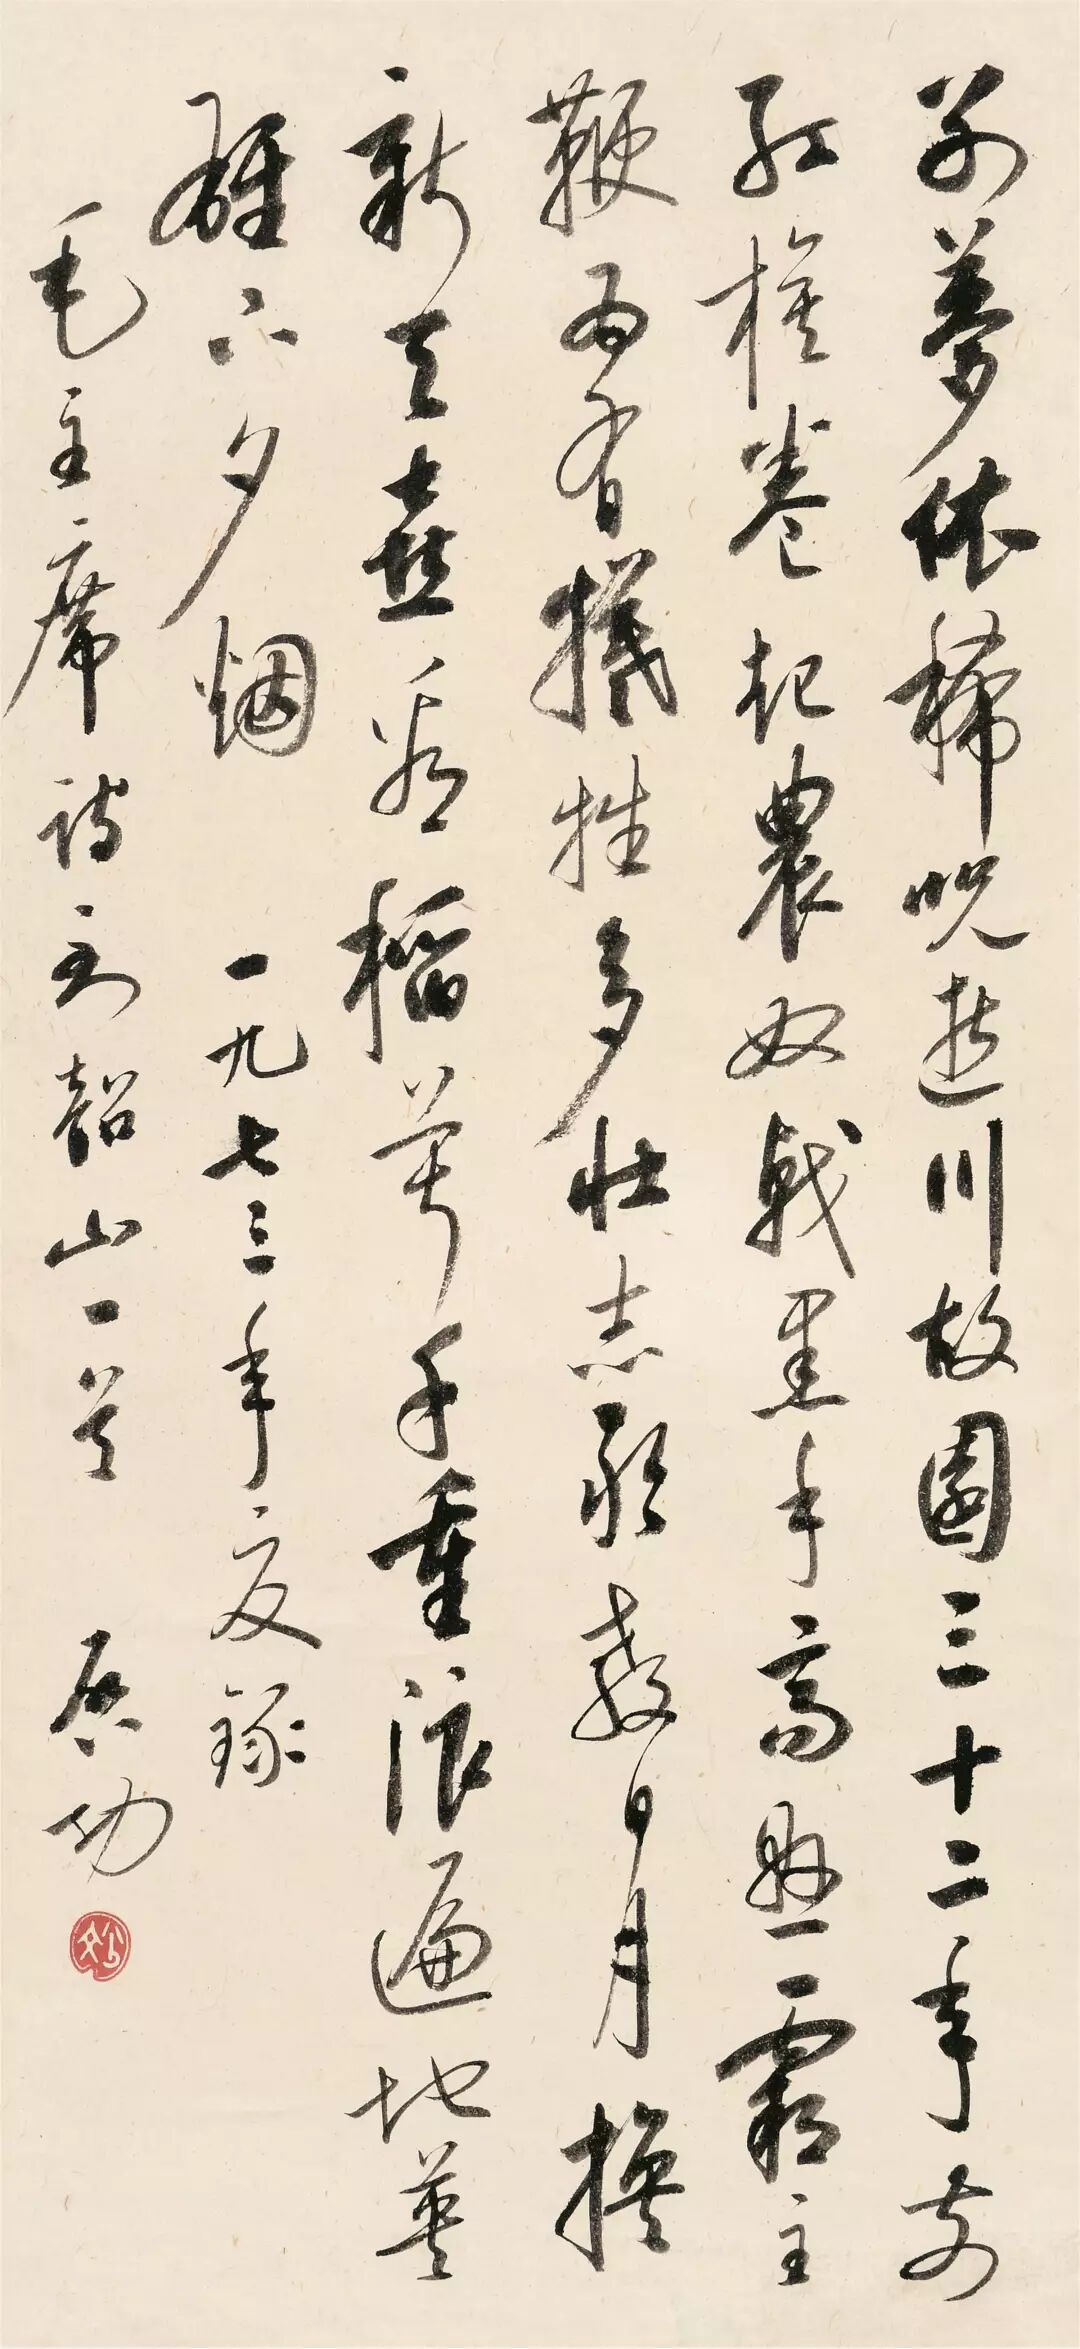 别夢依稀咒逝川故園三十二年前
紅旗卷起農奴戟黑手高悬霸主
鞭為有犧牲多壯志敢教日月換
新天喜看稻菽千重浪遍地英
雄下夕烟 一九七三年夏録
毛主席詩到韶山一首 启功